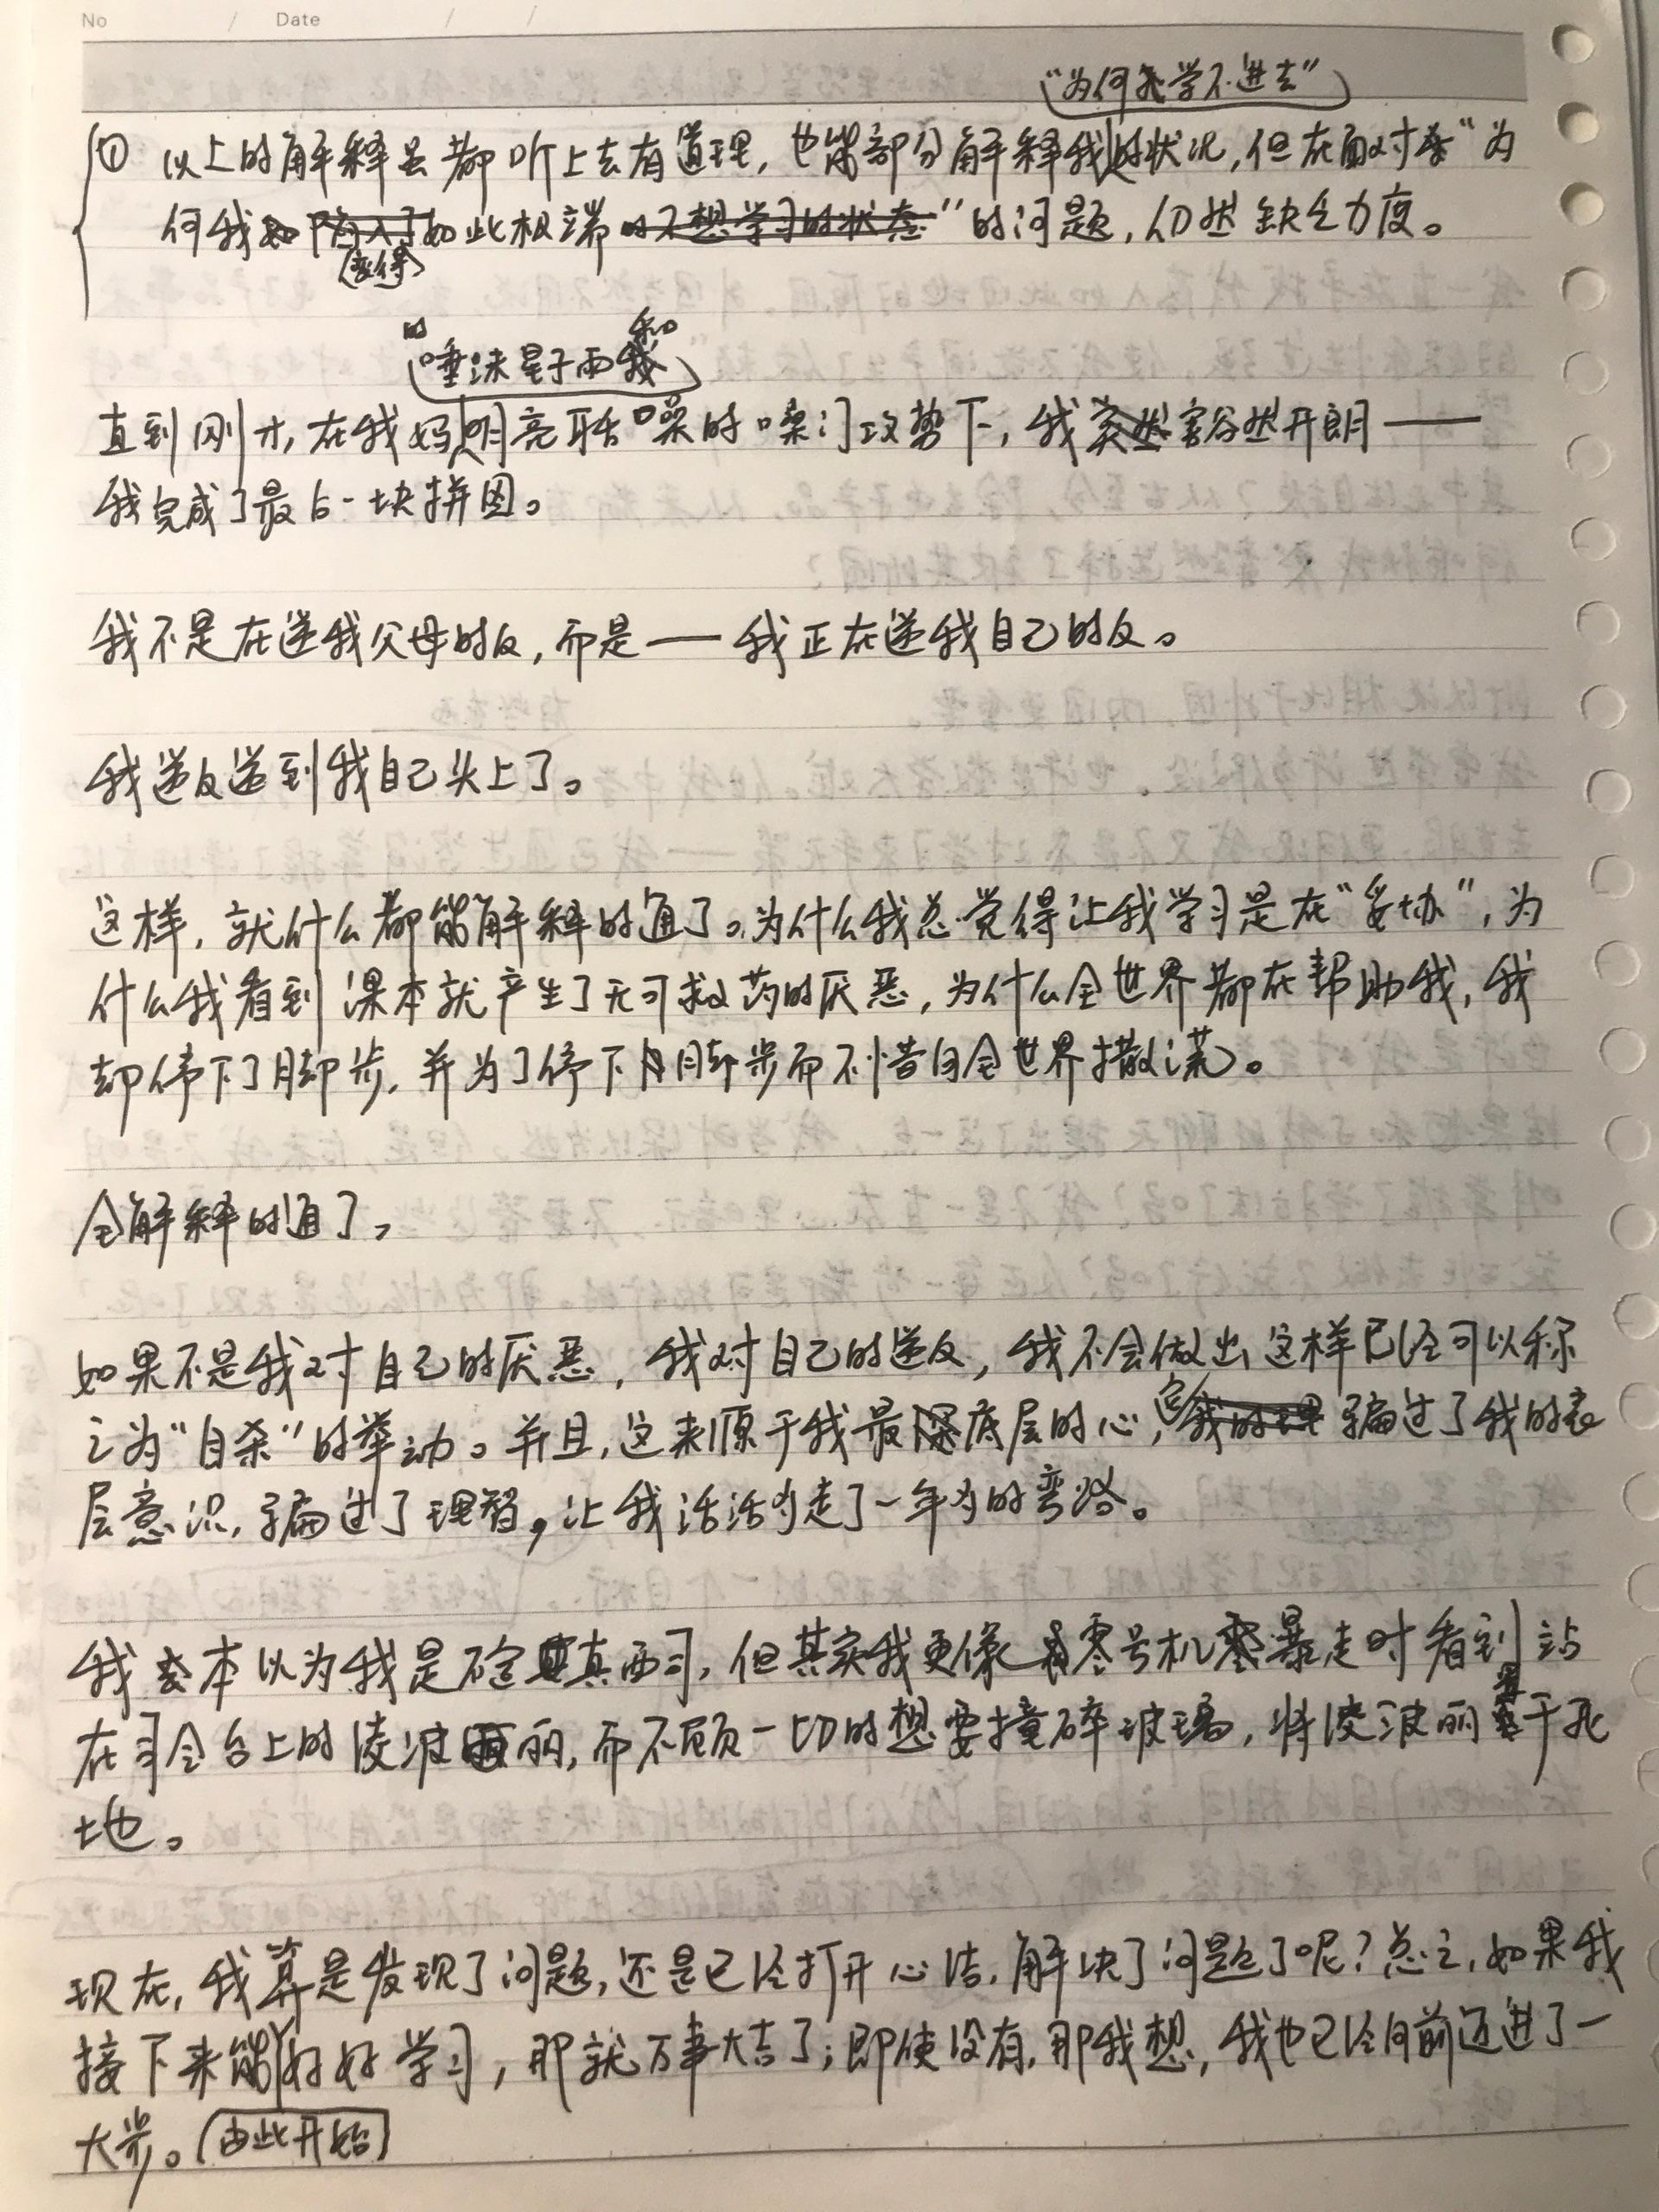 No / Date / /
“为何我学不进去”
① 以上的解释虽都听上去有道理，也能部分解释我的状况，但在面对“为
何我如此极端的不想学习的状态”的问题，仍然缺乏力度。
(变得)
的 和
唾沫星子雨
直到刚才，在我妈明亮聒噪的嗓门攻势下，我突然豁然开朗——
我完成了最后一块拼图。
我不是在逆我父母的反，而是——我正在逆我自己的反。
我逆反逆到我自己头上了。
这样，就什么都能解释的通了。为什么我总觉得让我学习是在“妥协”，为
什么我看到课本就产生了无可救药的厌恶，为什么全世界都在帮助我，我
却停下了脚步，并为了停下脚步而不惜向全世界撒谎。
全解释的通了。
如果不是我对自己的厌恶，我对自己的逆反，我不会做出这样已经可以称
之为“自杀”的举动。并且，这来原于我最底层的心，它骗过了我的表
层意识，骗过了理智，让我活活的走了一年多的弯路。
我本以为我是碇真嗣，但其实我更像零号机暴走时看到站
在司令台上的凌波丽，而不顾一切的想要撞碎玻璃，将凌波丽置于死
地。
现在，我算是发现了问题，还是已经打开心结，解决了问题了呢？总之，如果我
接下来能好好学习，那就万事大吉了；即使没有，那我想，我也已经向前迈进了一
大步。由此开始